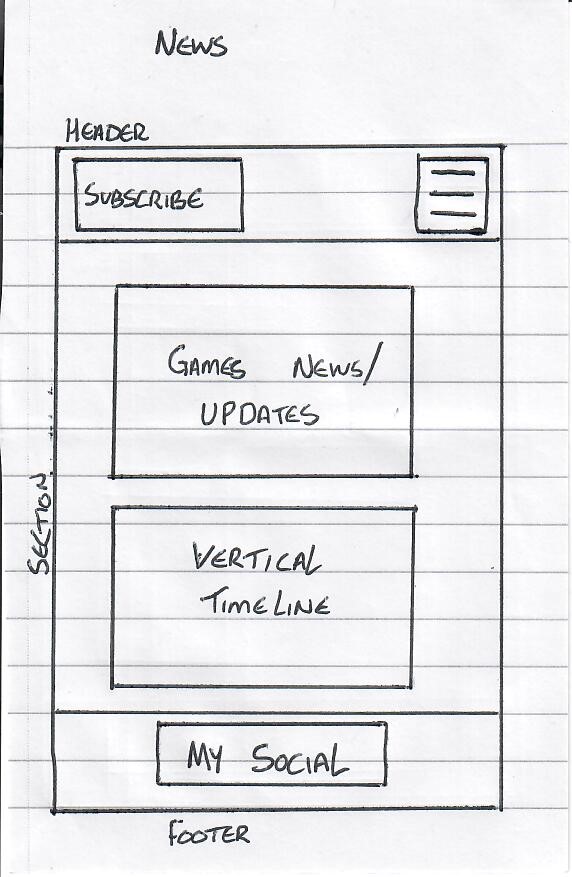 NEWS
HEADER
SUBSCRIBE
GAMES NEWS/
UPDATES
SECTION
VERTICAL
TIMELINE
MY SOCIAL
FOOTER